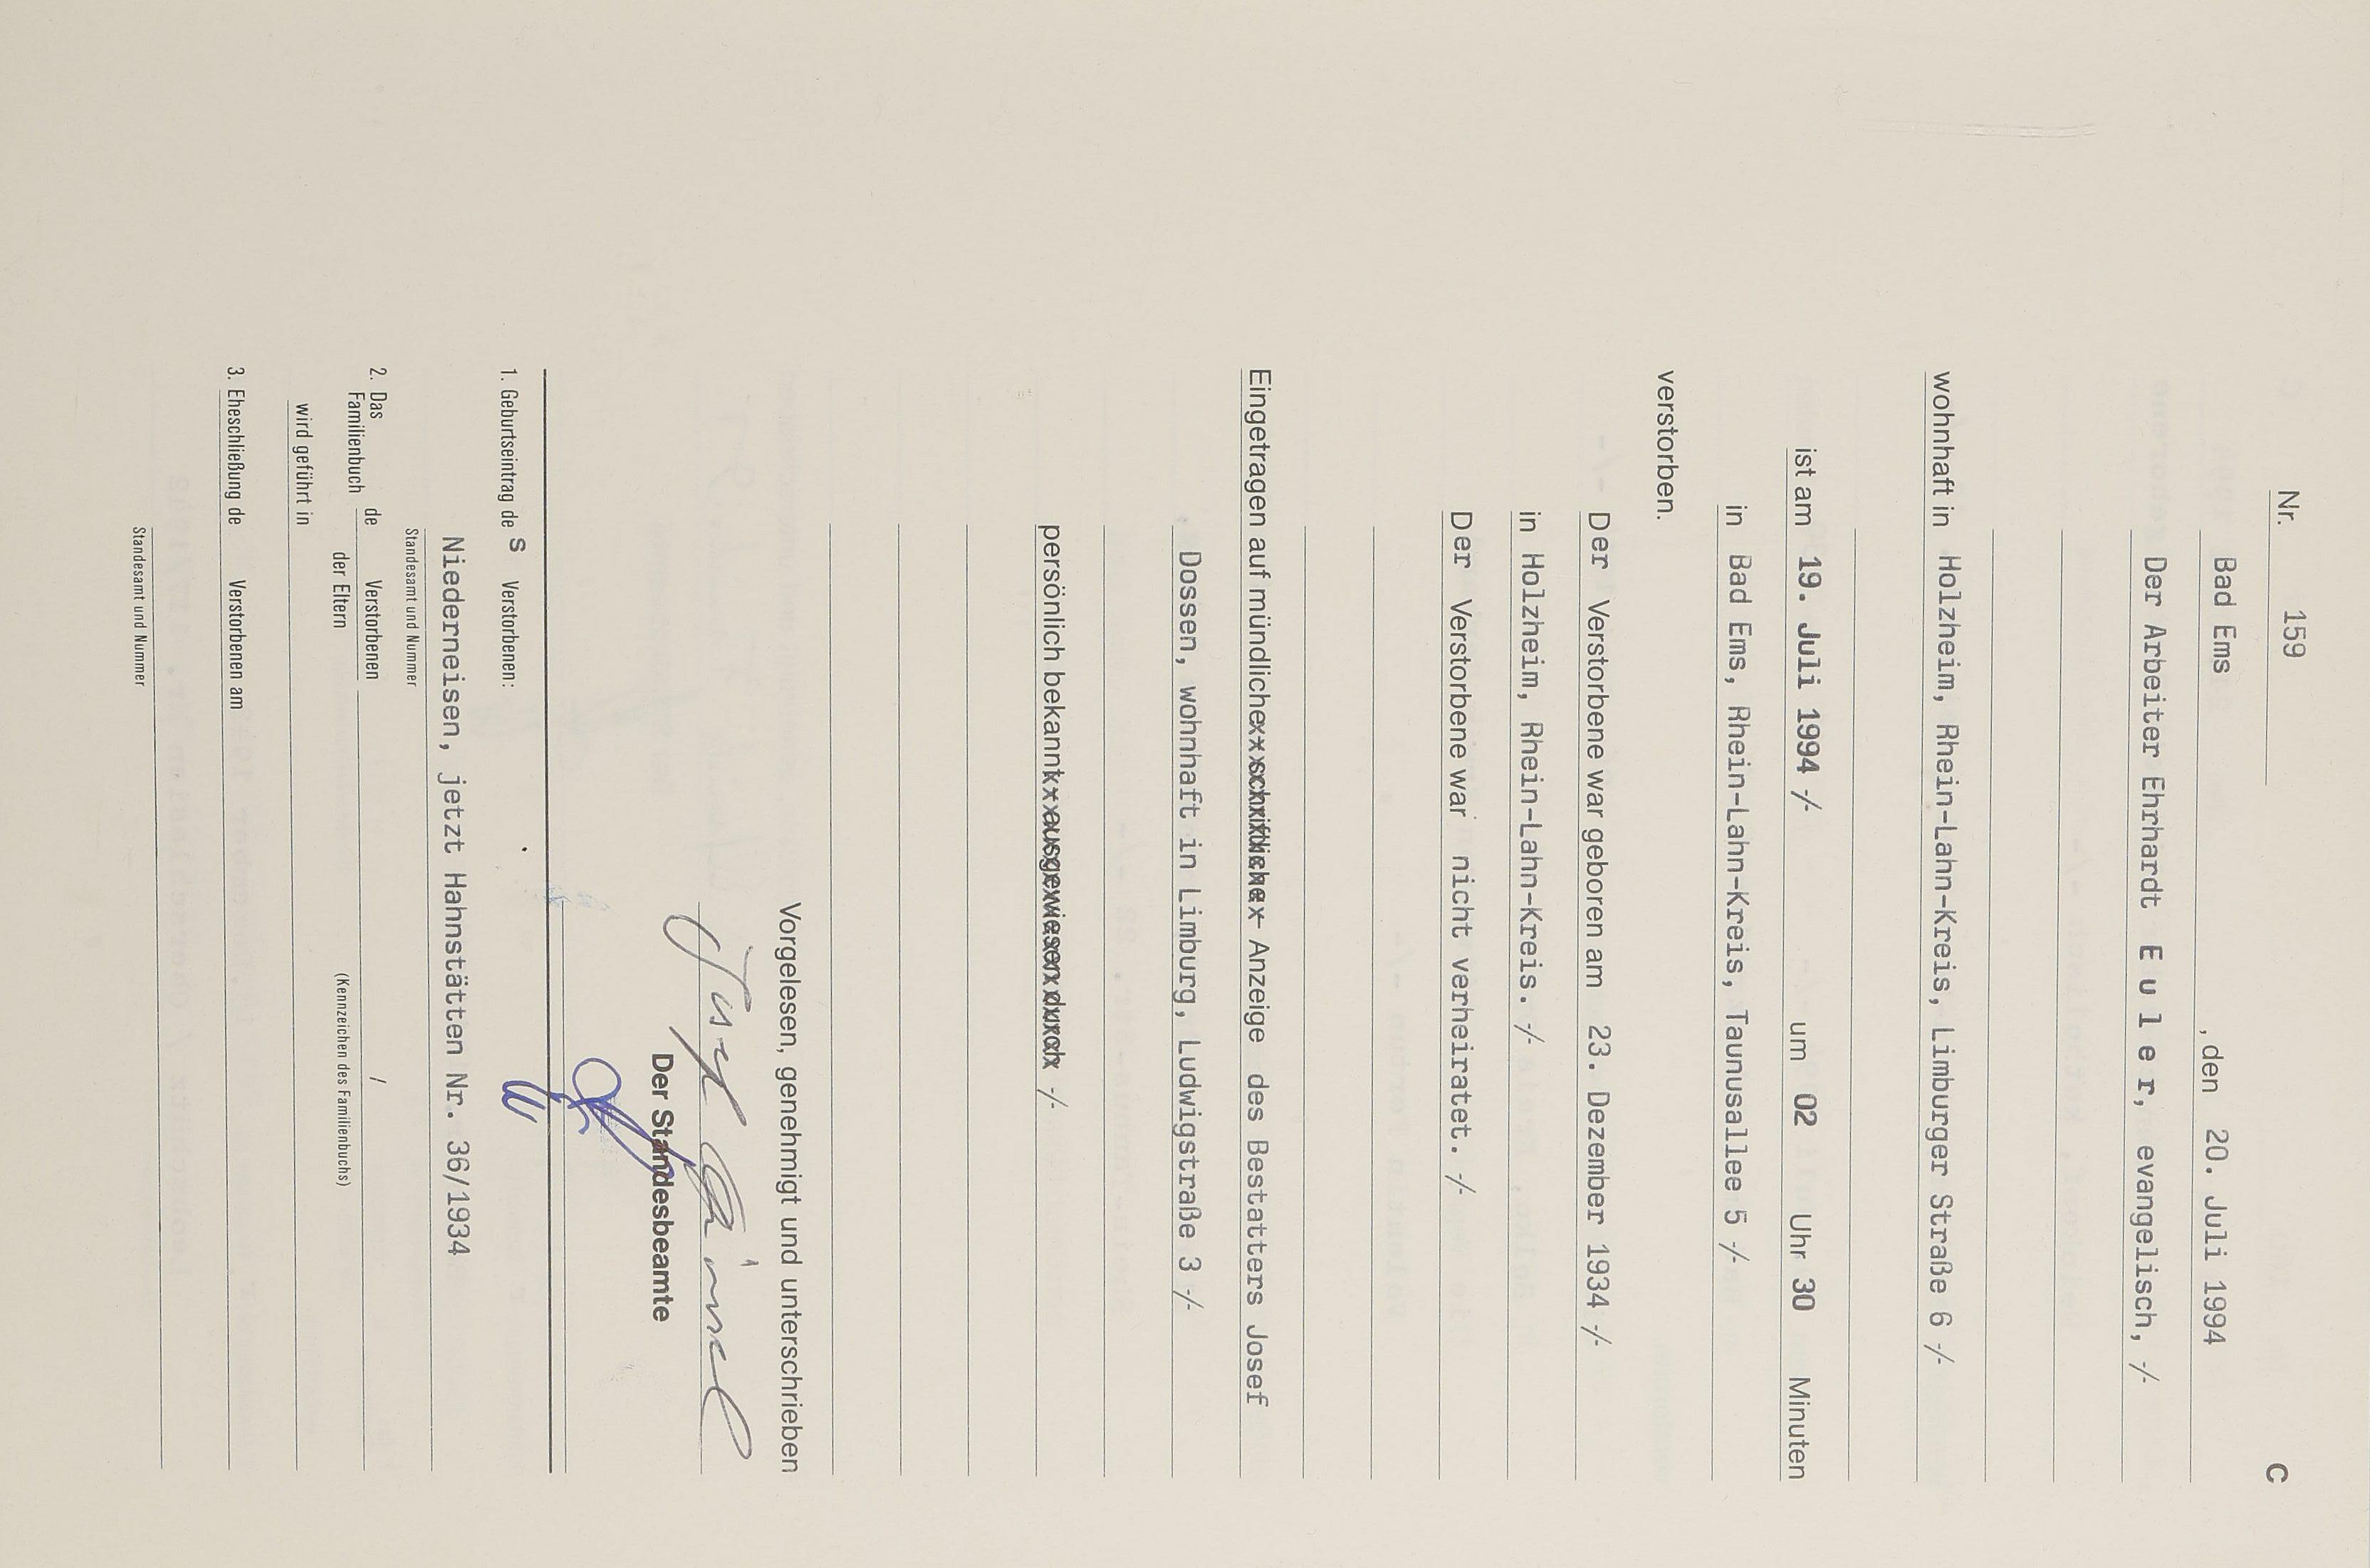 C
Nr. 159
Bad Ems , den 20. Juli 1994
Der Arbeiter Ehrhardt E u l e r, evangelisch, -/-
wohnhaft in Holzheim, Rhein-Lahn-Kreis, Limburger Straße 6 -/-
ist am 19. Juli 1994 -/- um 02 Uhr 30 Minuten
in Bad Ems, Rhein-Lahn-Kreis, Taunusallee 5 -/-
verstorben.
Der Verstorbene war geboren am 23. Dezember 1934 -/-
in Holzheim, Rhein-Lahn-Kreis. -/-
Der Verstorbene war nicht verheiratet. -/-
Eingetragen auf mündliche schriftliche Anzeige des Bestatters Josef
Dossen, wohnhaft in Limburg, Ludwigstraße 3 -/-
persönlich bekannt ausgewiesen durch -/-
Vorgelesen, genehmigt und unterschrieben
Der Standesbeamte
1. Geburtseintrag de s Verstorbenen:
Niederneisen, jetzt Hahnstätten Nr. 36/1934
Standesamt und Nummer
2. Das Familienbuch de Verstorbenen /
der Eltern (Kennzeichen des Familienbuchs)
wird geführt in
3. Eheschließung de Verstorbenen am
Standesamt und Nummer